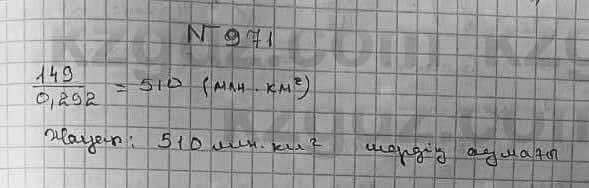 N 971
149/0,292 = 510 (млн. км²)
Жауап: 510 млн. км² жердің аумағы